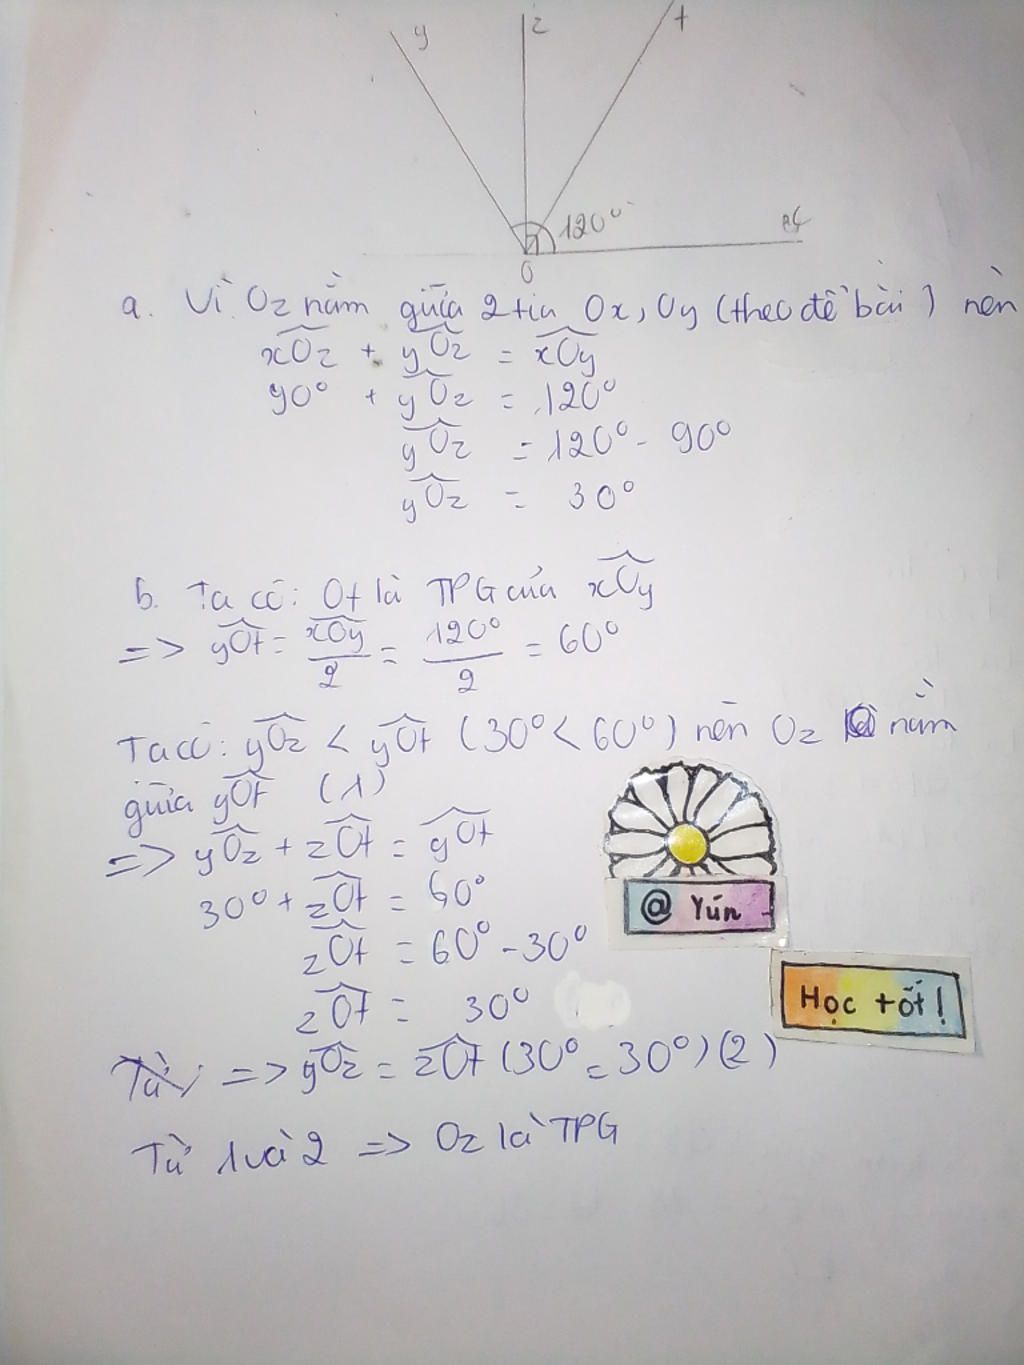 y z t
120°
O
a. Vì Oz nằm giữa 2 tia Ox, Oy (theo đề bài) nên
xOz + yOz = xOy
90° + yOz = 120°
yOz = 120° - 90°
yOz = 30°
b. Ta có: Ot là TPG của xOy
=> yOt = xOy/2 = 120°/2 = 60°
Ta có: yOz < yOt (30° < 60°) nên Oz nằm
giữa yOt (1)
=> yOz + zOt = yOt
30° + zOt = 60°
zOt = 60° - 30°
zOt = 30°
=> yOz = zOt (30° = 30°) (2)
Từ 1 và 2 => Oz là TPG
@ Yún
Học tốt!